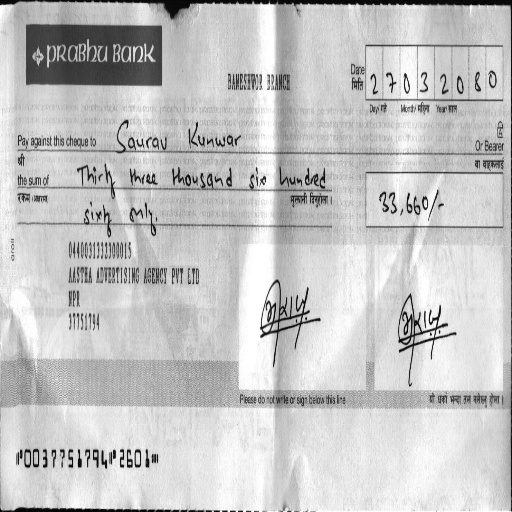 PRABHU BANK
BANESHWOR BRANCH
Date
मिति
27032080
Day/गते Month/महिना Year/साल
Pay against this cheque to Saurav Kunwar Or Bearer
श्री वा वाहकलाई
the sum of Thirty three thousand six hundred
रकम (अक्षरमा
sixty only.
33,660/-
AASTHA ADVERTISING AGENCY PVT LTD
NPR
37751794
Please do not write or sign below this line
⑈0037751794⑈2601⑈